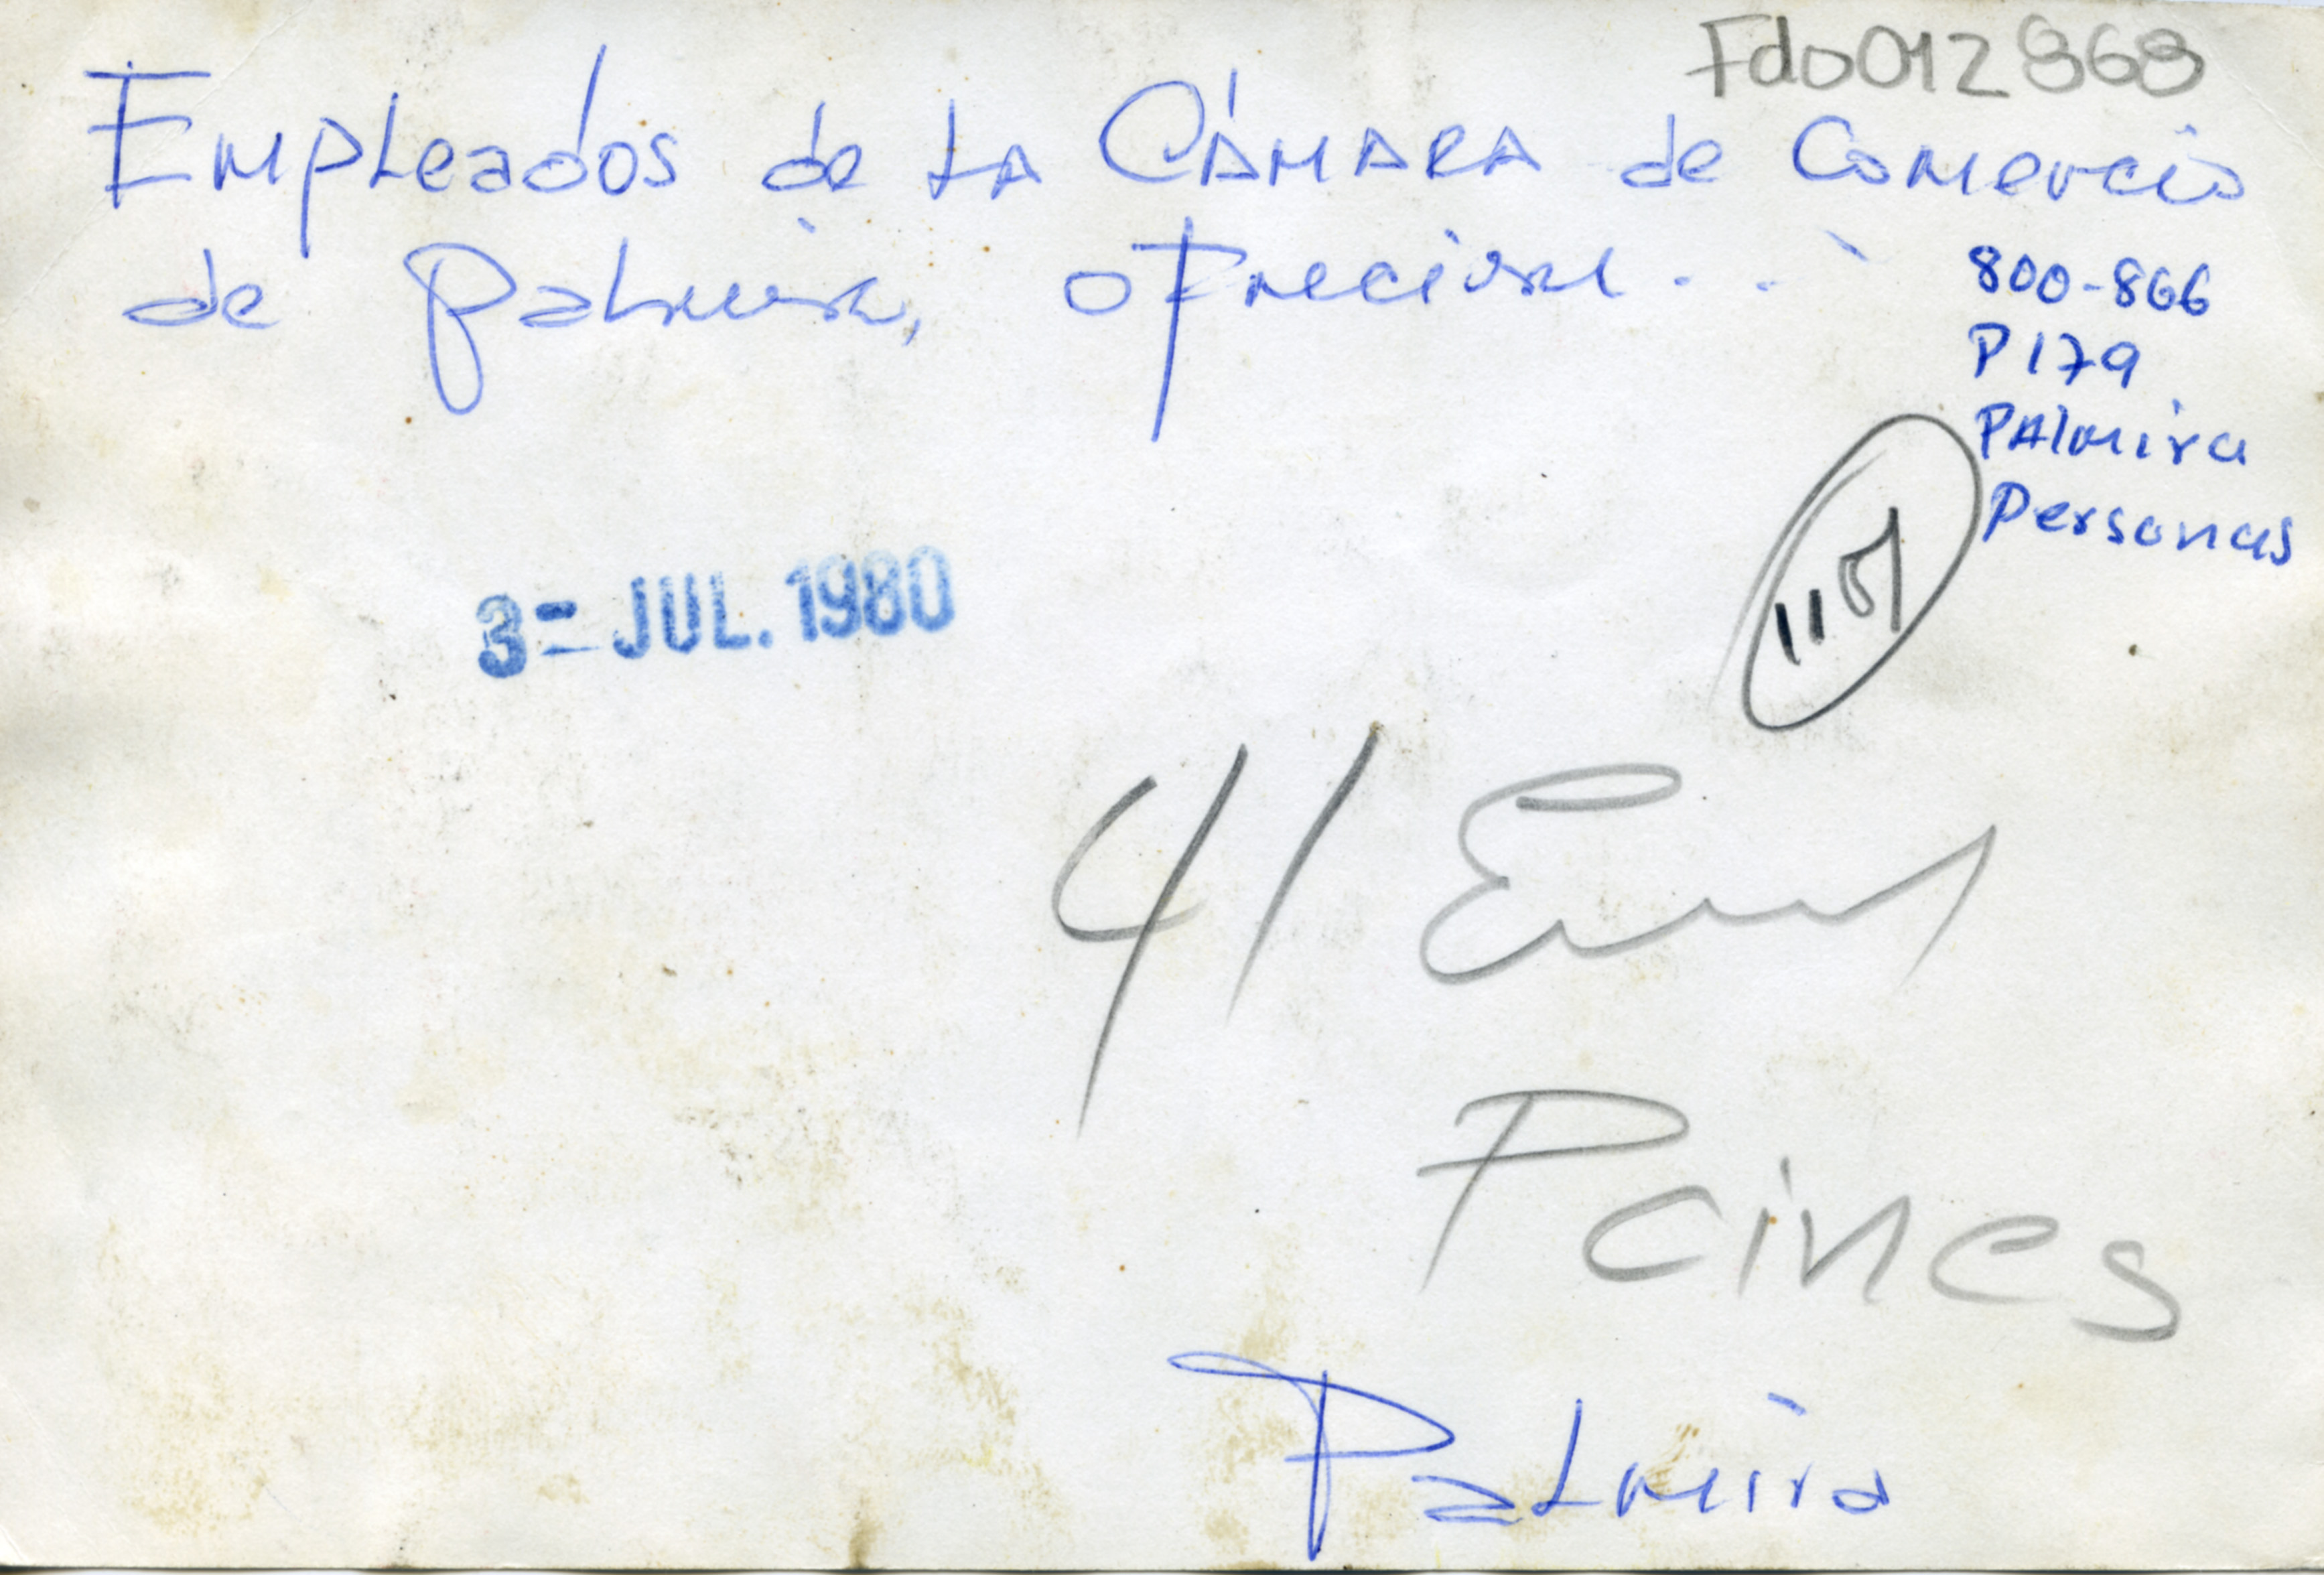 Fdo012868
Empleados de LA CÁMARA de Comercio
de Palmira, ofrecieron...
800-866
P179
PAlmira
Personas
3 = JUL. 1980
41
Pcines
Palmira